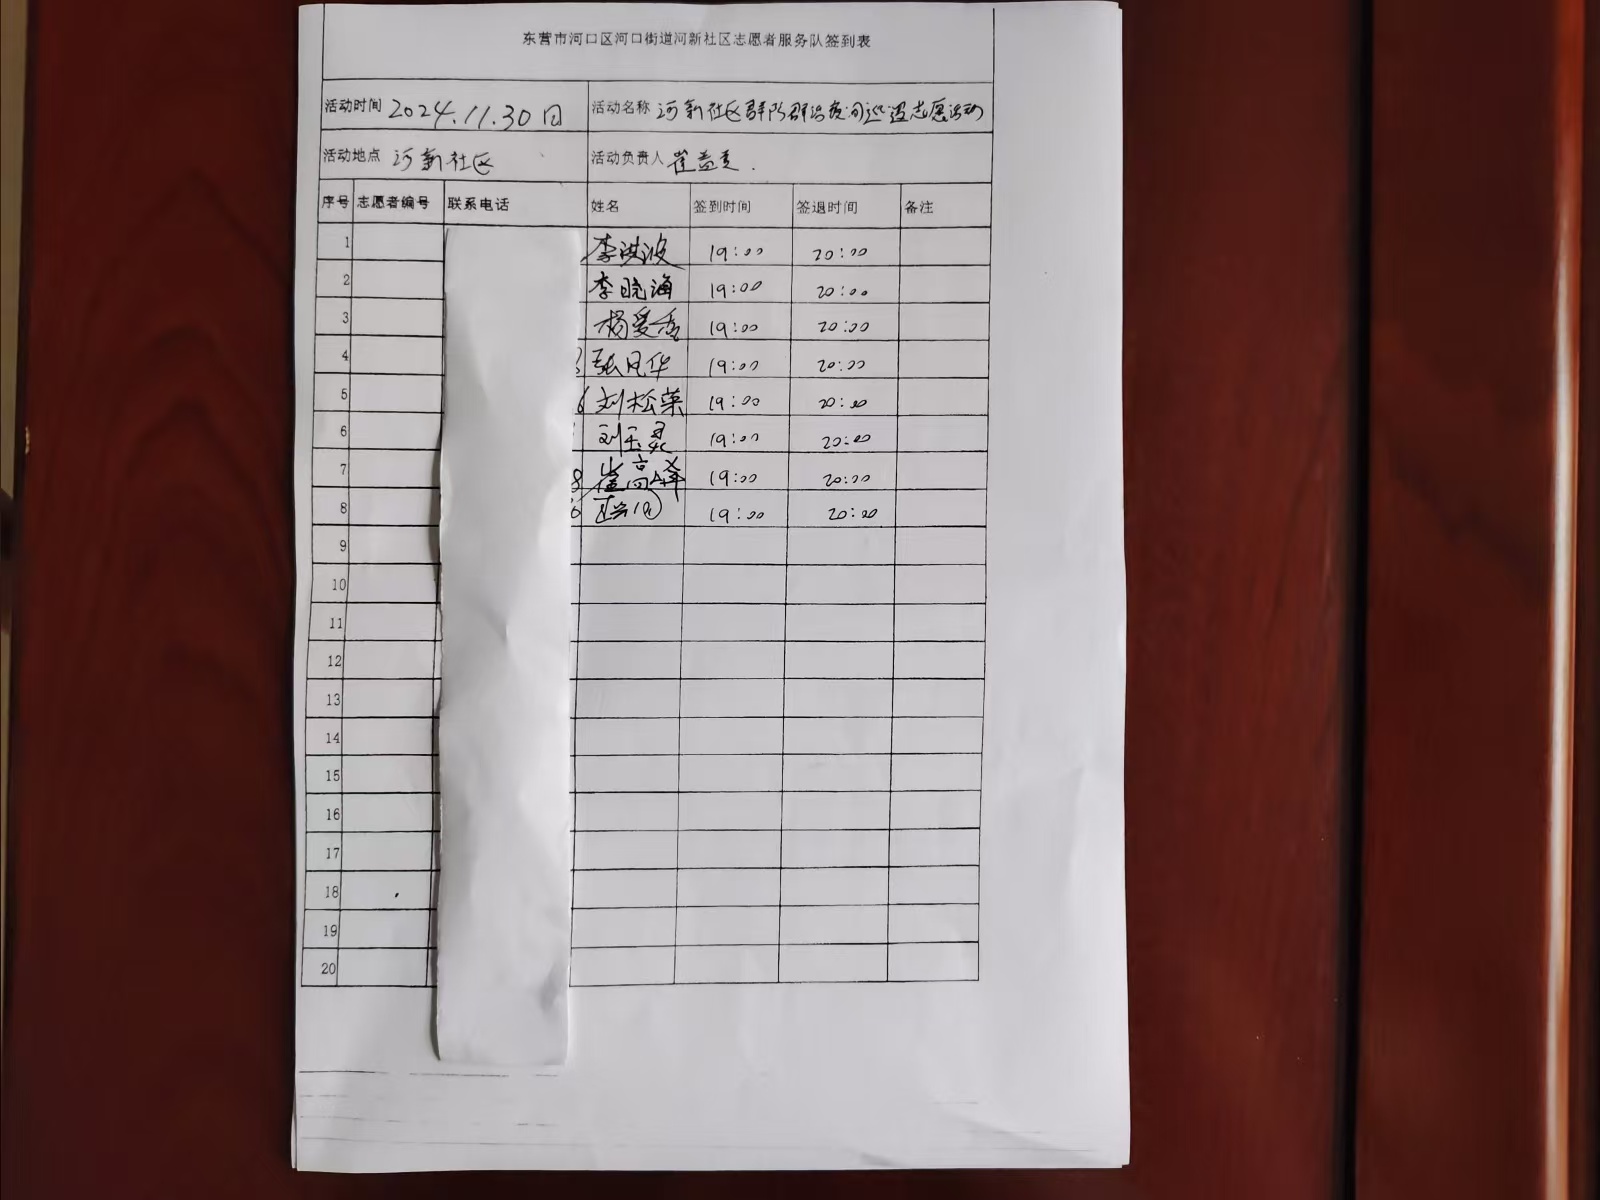 东营市河口区河口街道河新社区志愿者服务队签到表
活动时间 2024.11.30日 活动名称 河新社区群防群治夜间巡逻志愿活动
活动地点 河新社区 活动负责人 崔
序号 志愿者编号 联系电话 姓名 签到时间 签退时间 备注
1 李洪波 19:00 20:00
2 李晓海 19:00 20:00
3 杨爱香 19:00 20:00
4 张凤华 19:00 20:00
5 6 刘松荣 19:00 20:00
6 刘玉灵 19:00 20:00
7 8 崔高峰 19:00 20:00
8 6 19:00 20:00
9
10
11
12
13
14
15
16
17
18
19
20